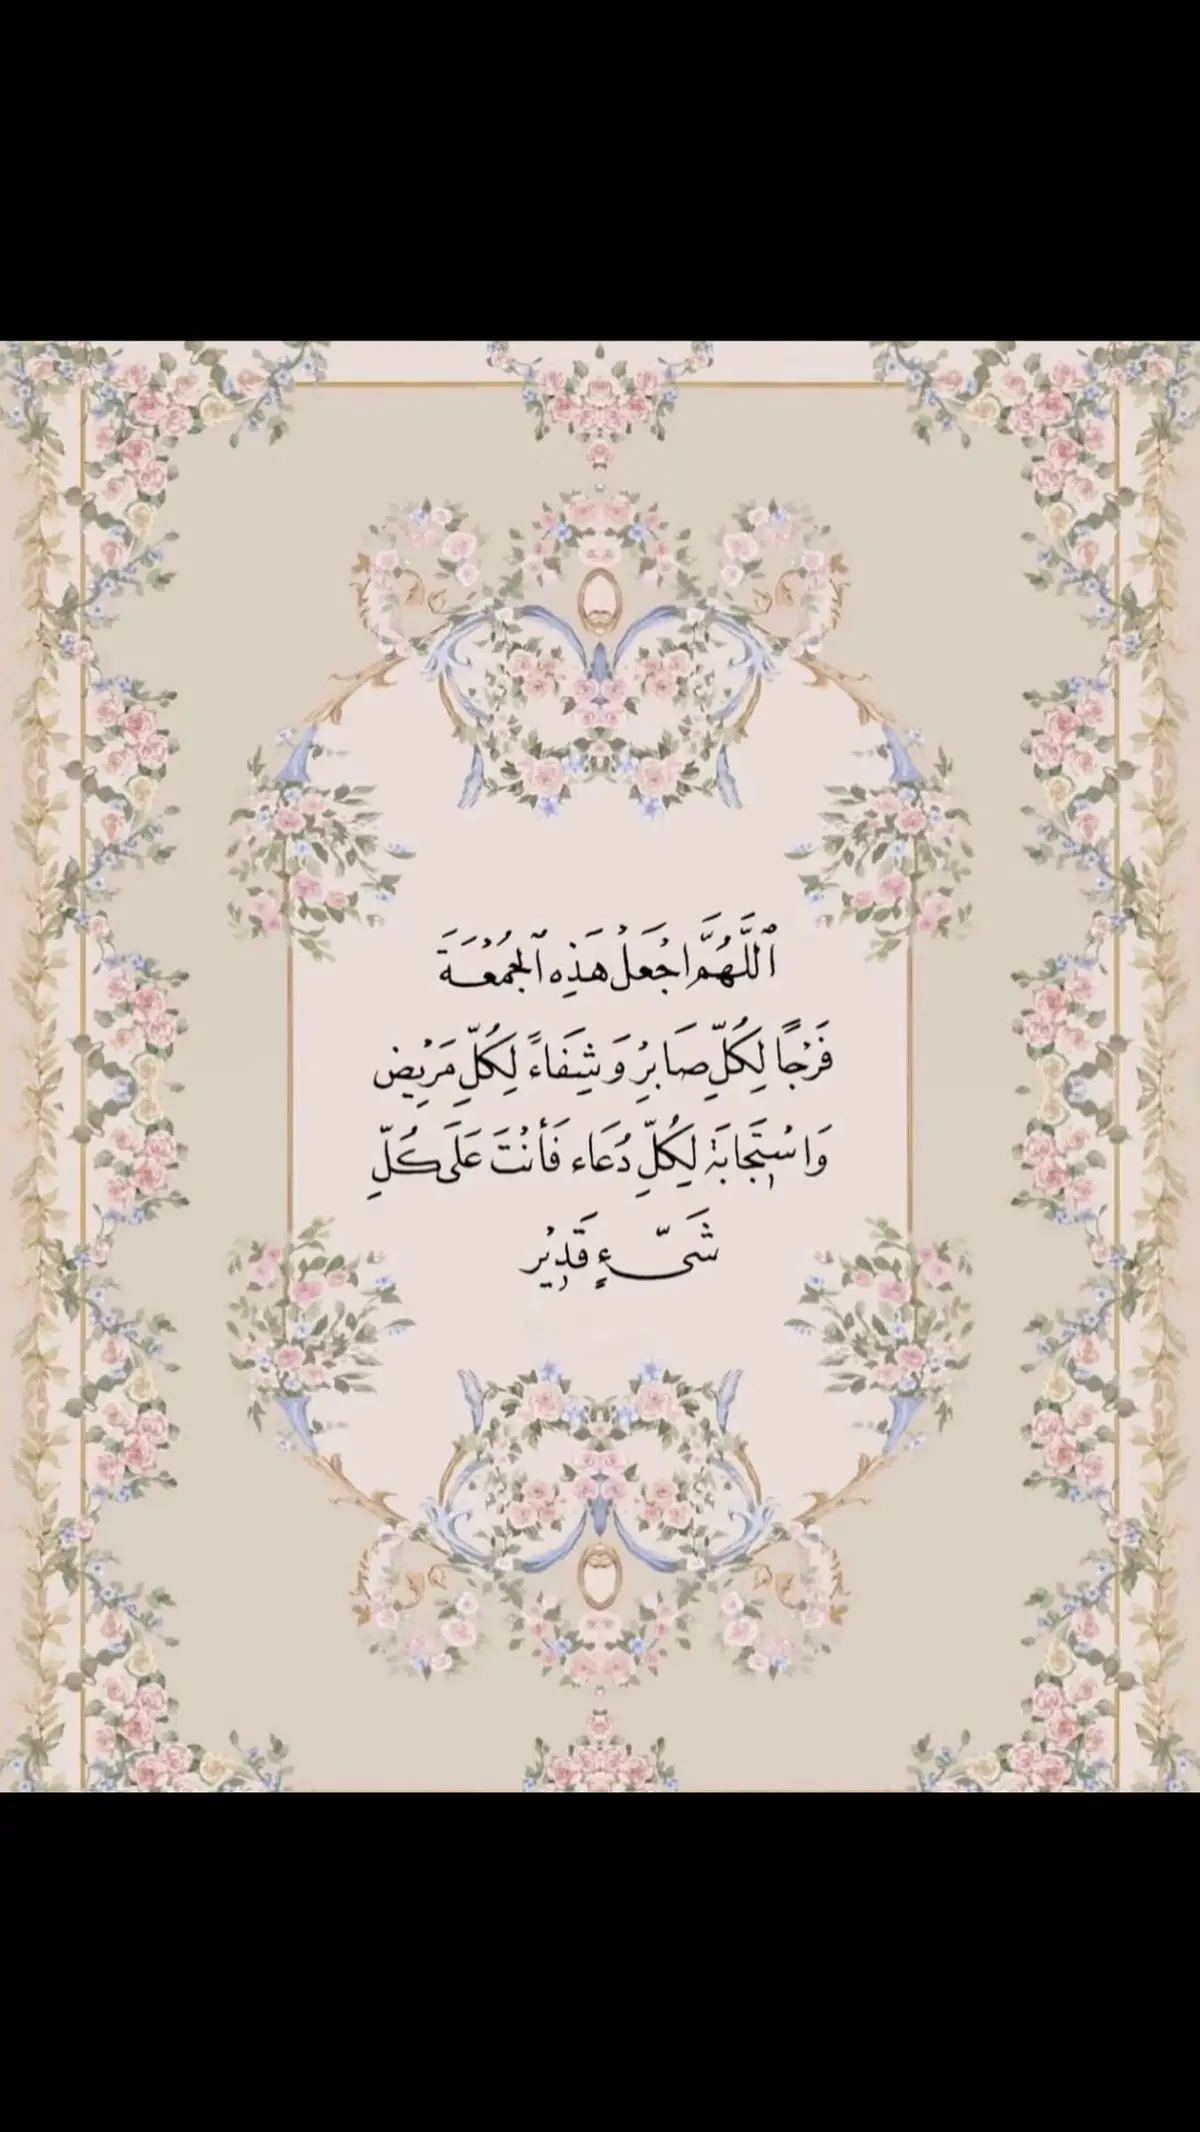 ٱللَّهُمَّ اجْعَلْ هَذِهِ ٱلْجُمُعَةَ
فَرَجًا لِكُلِّ صَابِرٍ وَشِفَاءً لِكُلِّ مَرِيْض
وَاسْتِجَابَة لِكُلِّ دُعَاء فَأَنْتَ عَلَى كُلِّ
شَيْءٍ قَدِيْر